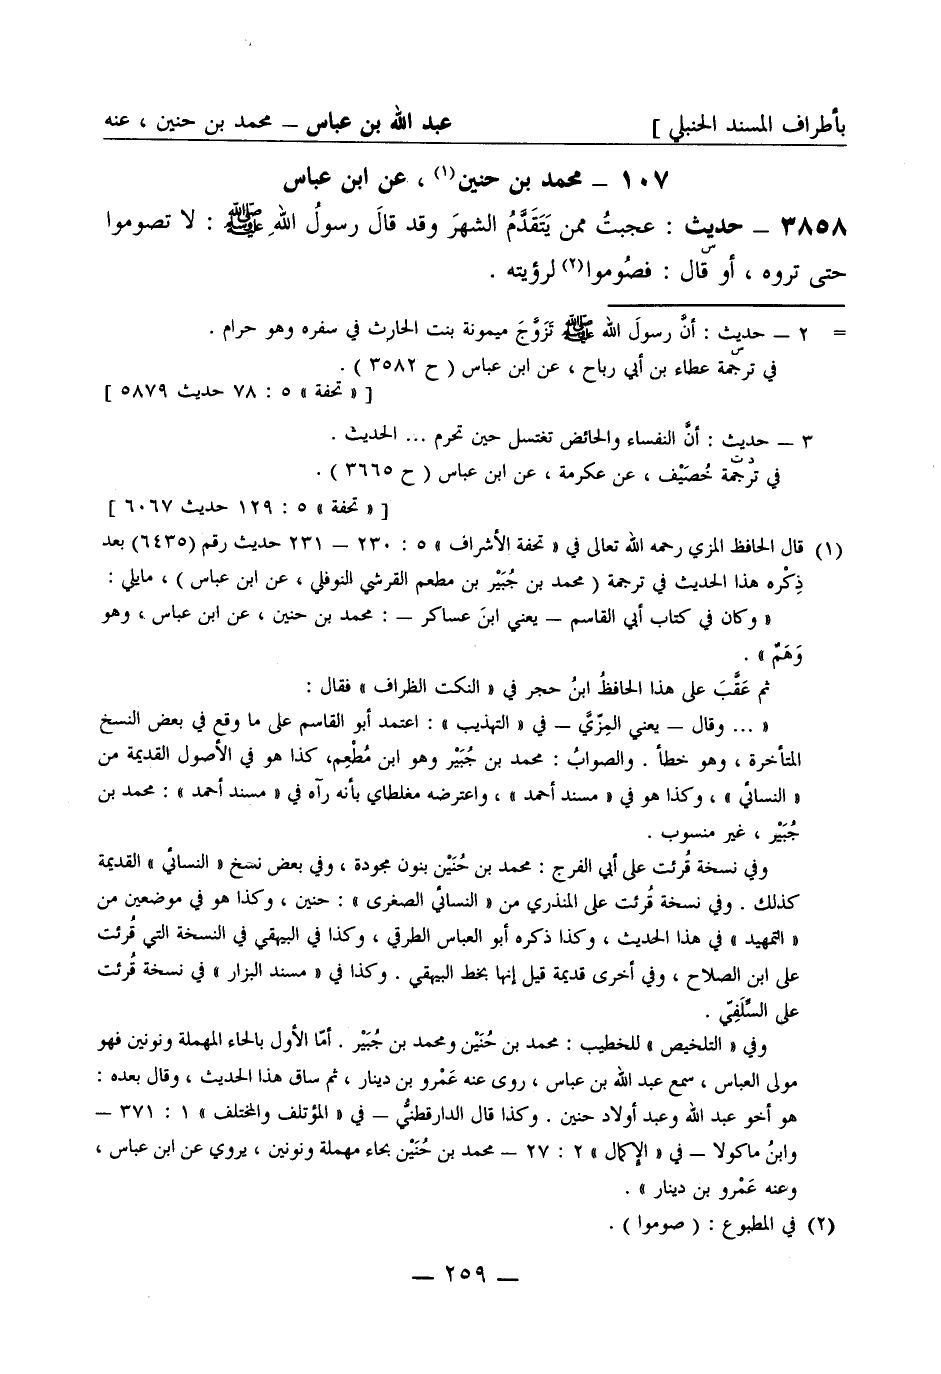 بأطراف المسند الحنبلي ] عبد الله بن عباس – محمد بن حنين ، عنه
١٠٧ – محمد بن حنين(١) ، عن ابن عباس
٣٨٥٨ – حديث : عجبتُ ممن يَتَقَدَّمُ الشهرَ وقد قالَ رسولُ اللهِ ﷺ : لا تصوموا
س
حتى تروه ، أو قال : فصُوموا(٢) لرؤيته .
= ٢ – حديث : أنَّ رسولَ الله ﷺ تَزَوَّجَ ميمونة بنت الحارث في سفره وهو حرام .
س
في ترجمة عطاء بن أبي رباح ، عن ابن عباس ( ح ٣٥٨٢ ) .
[ « تحفة » ٥ : ٧٨ حديث ٥٨٧٩ ]
٣ – حديث : أنَّ النفساء والحائض تغتسل حين تحرم ... الحديث .
د ت
في ترجمة خُصَيْف ، عن عكرمة ، عن ابن عباس ( ح ٣٦٦٥ ) .
[ « تحفة » ٥ : ١٢٩ حديث ٦٠٦٧ ]
(١) قال الحافظ المزي رحمه الله تعالى في « تحفة الأشراف » ٥ : ٢٣٠ – ٢٣١ حديث رقم (٦٤٣٥) بعد
ذِكْره هذا الحديث في ترجمة ( محمد بن جُبَيْر بن مطعم القرشي النوفلي ، عن ابن عباس ) ، مايلي :
« وكان في كتاب أبي القاسم – يعني ابنَ عساكر – : محمد بن حنين ، عن ابن عباس ، وهو
وَهَمٌ » .
ثم عَقَّبَ على هذا الحافظُ ابنُ حجر في « النكت الظراف » فقال :
« ... وقال – يعني المِزِّيَّ – في « التهذيب » : اعتمد أبو القاسم على ما وقع في بعض النسخ
المتأخرة ، وهو خطأ . والصوابُ : محمد بن جُبَيْر وهو ابن مُطْعِم، كذا هو في الأصول القديمة من
« النسائي » ، وكذا هو في « مسند أحمد » ، واعترضه مغلطاي بأنه رآه في « مسند أحمد » : محمد بن
جُبَيْر ، غير منسوب .
وفي نسخة قُرئت على أبي الفرج : محمد بن حُنَيْن بنون مجودة ، وفي بعض نسخ « النسائي » القديمة
كذلك . وفي نسخة قُرئت على المنذري من « النسائي الصغرى » : حنين ، وكذا هو في موضعين من
« التمهيد » في هذا الحديث ، وكذا ذكره أبو العباس الطرقي ، وكذا في البيهقي في النسخة التي قُرئت
على ابن الصلاح ، وفي أخرى قديمة قيل إنها بخط البيهقي . وكذا في « مسند البزار » في نسخة قُرئت
على السِّلَفِيّ .
وفي « التلخيص » للخطيب : محمد بن حُنَيْن ومحمد بن جُبَيْر . أمّا الأول بالحاء المهملة ونونين فهو
مولى العباس ، سمع عبد الله بن عباس ، روى عنه عَمْرو بن دينار ، ثم ساق هذا الحديث ، وقال بعده :
هو أخو عبد الله وعبد أولاد حنين . وكذا قال الدارقطنيُّ – في « المؤتلف والمختلف » ١ : ٣٧١ –
وابنُ ماكولا – في « الإكمال » ٢ : ٢٧ – محمد بن حُنَيْن بحاء مهملة ونونين ، يروي عن ابن عباس ،
وعنه عَمْرو بن دينار » .
(٢) في المطبوع : ( صوموا ) .
– ٢٥٩ –